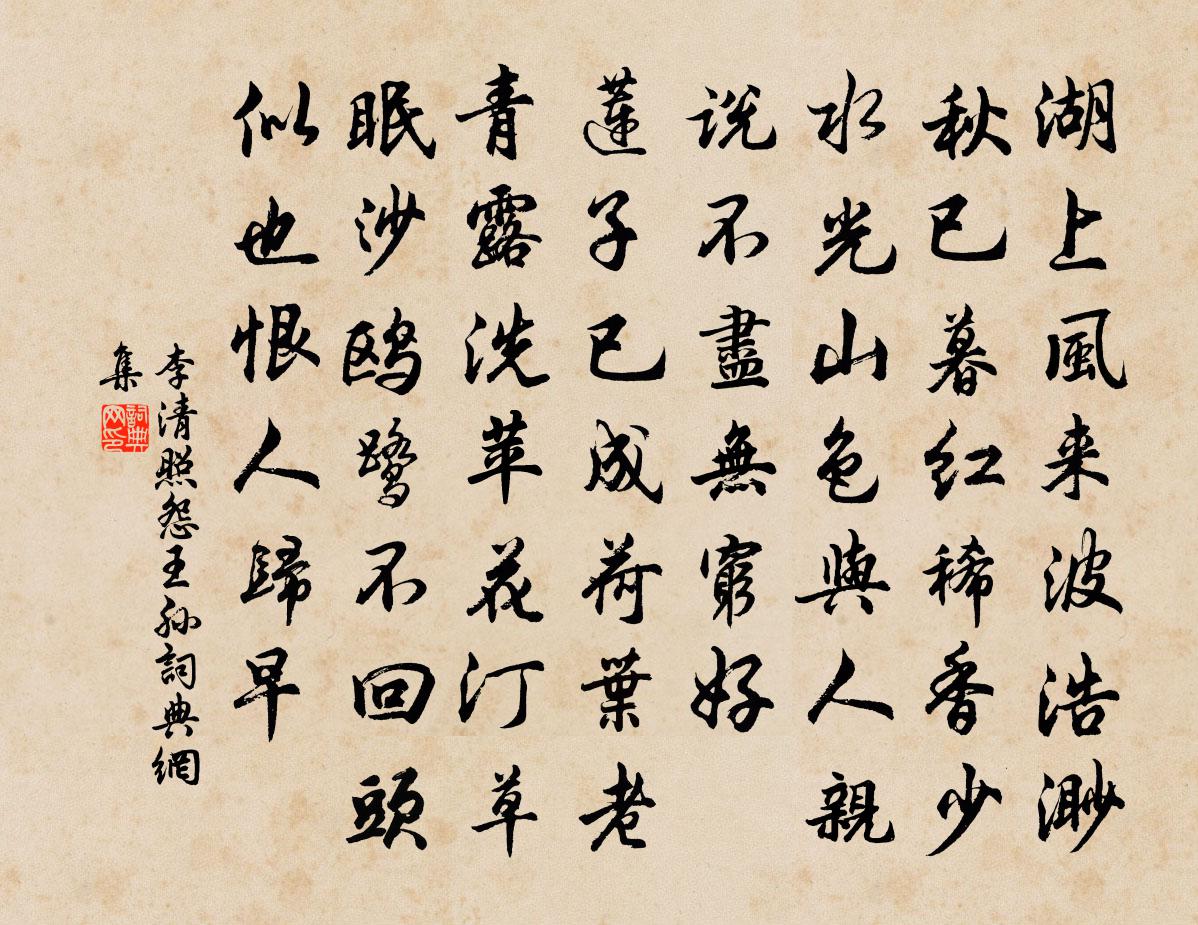 湖上風来波浩渺
秋已暮红稀香少
水光山色與人親
说不盡無窮好
蓮子已成荷葉老
青露洗苹花汀草
眠沙鸥鹭不回頭
似也恨人歸早
李清照怨王孙詞典網
集
詞典
网印